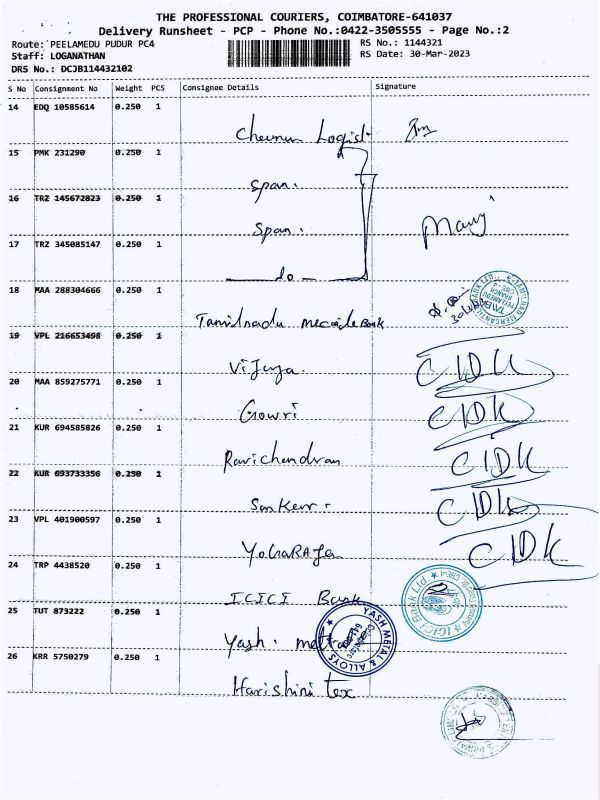 THE PROFESSIONAL COURIERS, COIMBATORE-641037
Delivery Runsheet - PCP - Phone No.:0422-3505555 - Page No.:2
Route: PEELAMEDU PUDUR PC4 RS No.: 1144321
Staff: LOGANATHAN RS Date: 30-Mar-2023
DRS No.: DCJB114432102
S No Consignment No Weight PCS Consignee Details Signature
14 EDQ 10585614 0.250 1
15 PMK 231290 0.250 1
Span.
16 TRZ 145672823 0.250 1
Span.
17 TRZ 345085147 0.250 1
do
18 MAA 288304666 0.250 1
Tamilnadu Bank
19 VPL 216653498 0.250 1
Vijaya. CIDK
20 MAA 859275771 0.250 1
Gowri CIDK
21 KUR 694585826 0.250 1
Ravichandran CIDK
22 KUR 693733356 0.250 1
CIDK
23 VPL 401900597 0.250 1
YOGARAJA CIDK
24 TRP 4438520 0.250 1
ICICI Bank
ICICI Bank Ltd
25 TUT 873222 0.250 1
Yash.
YASH METAL & ALLOYS
26 KRR 5750279 0.250 1
Harishini tex